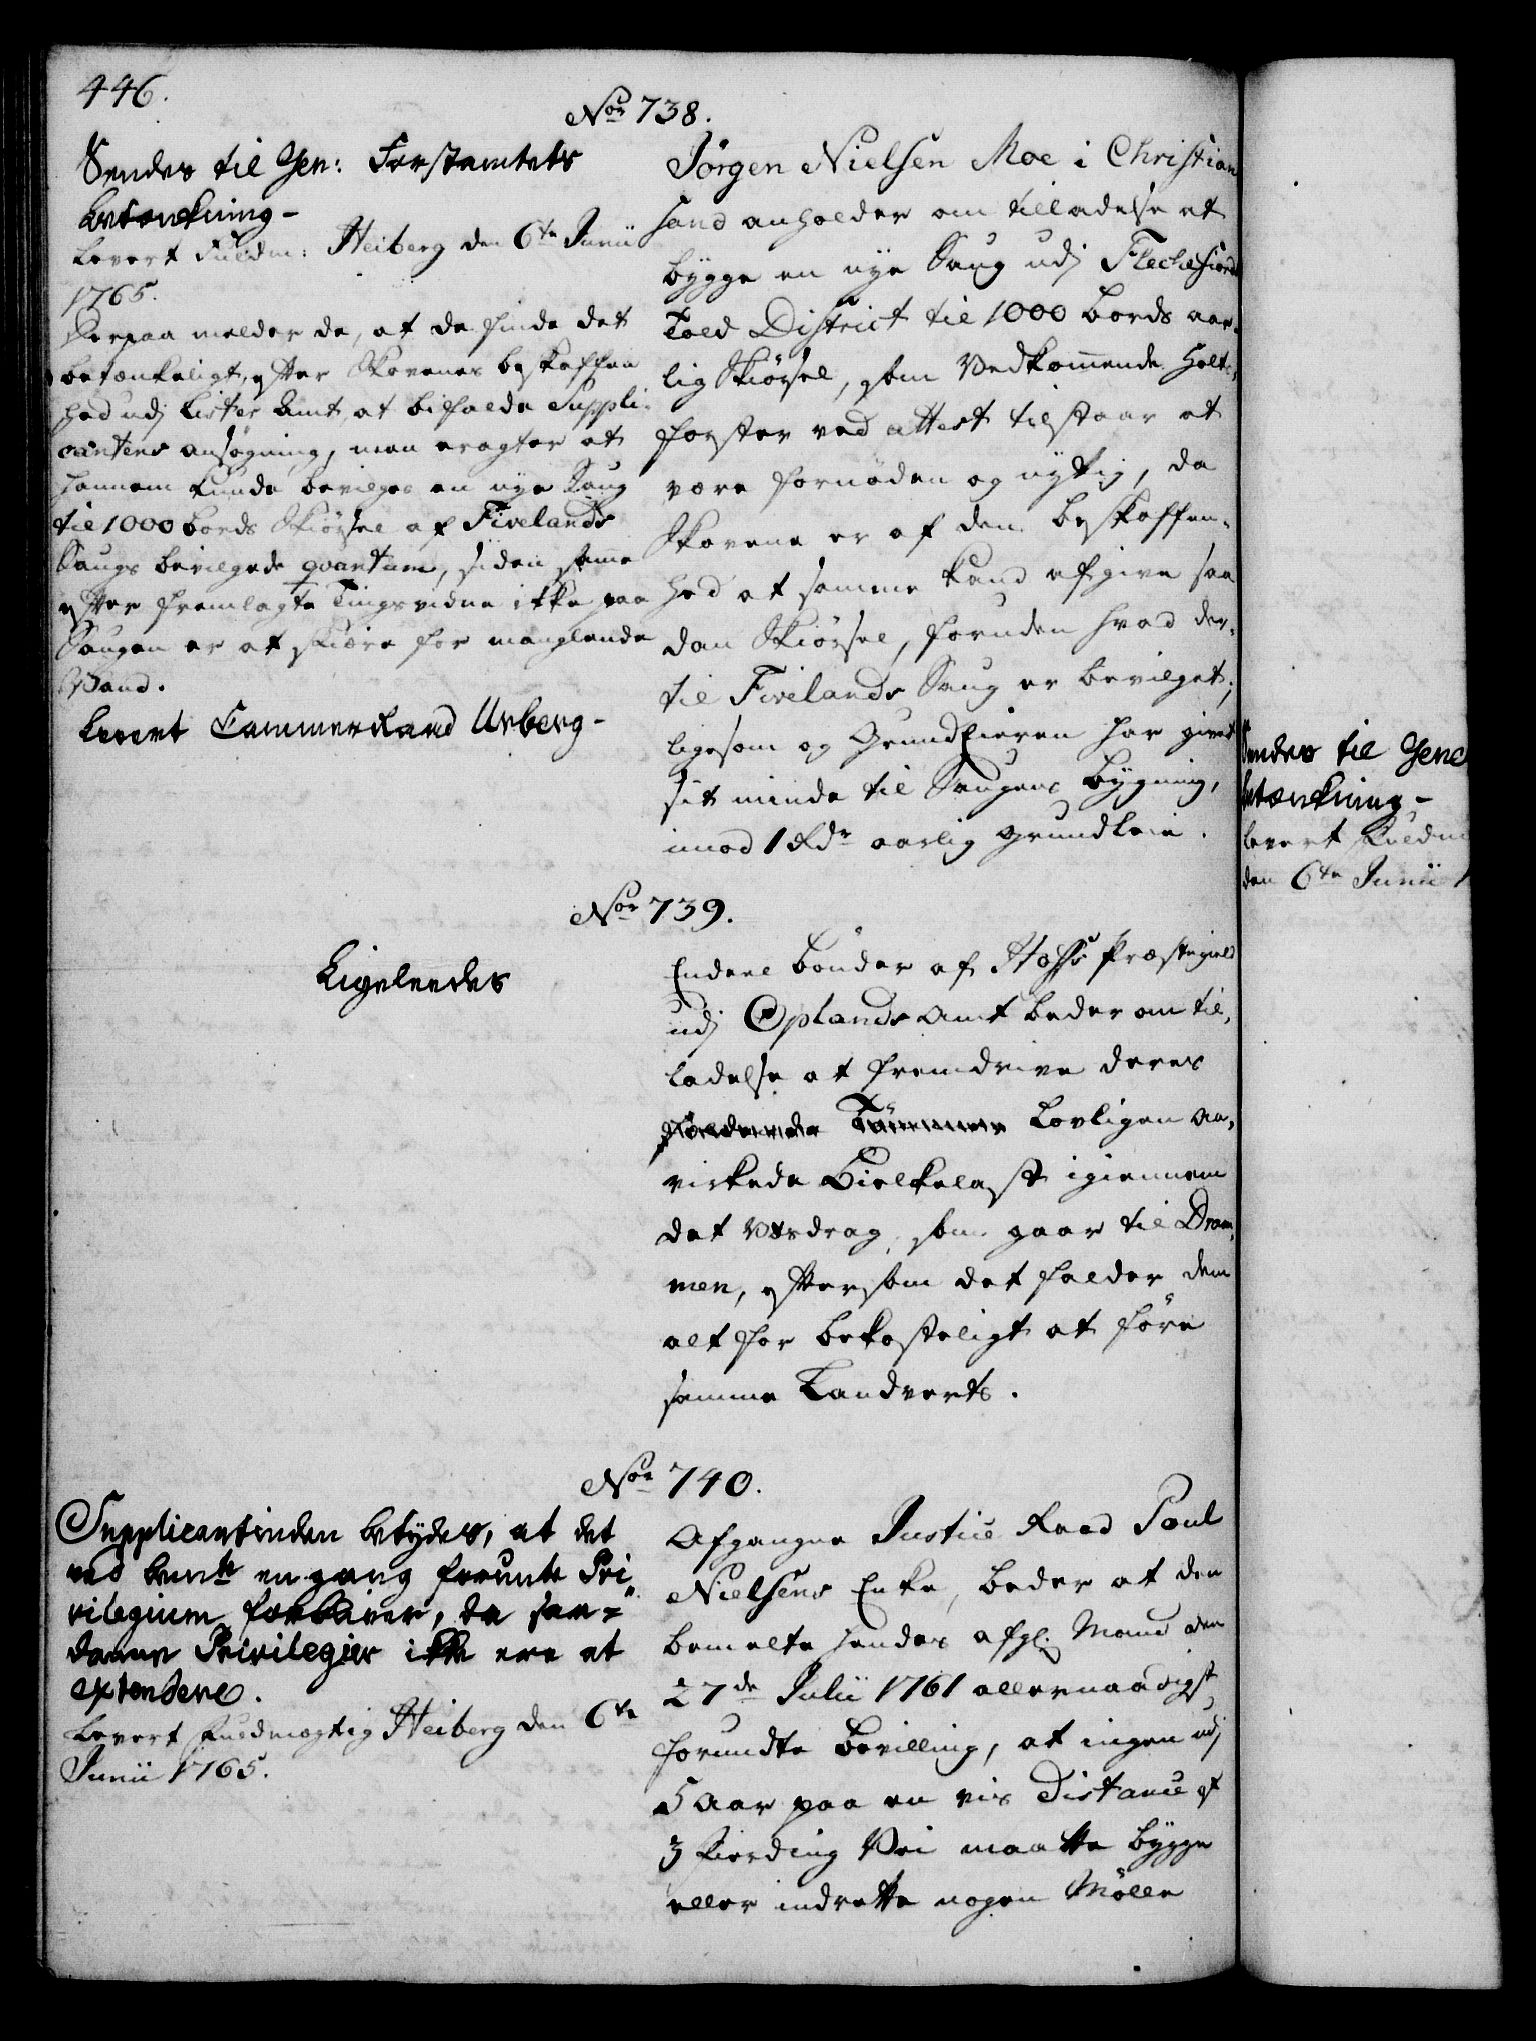 446.
Nor 738.
Sendes til Gen: Forstamtets
Betænkning -
Levert Fuldm: Heiberg den 6te Junii
1765.
Herpaa melder de, at de finde det
betænkeligt, efter Skovenes beskaffen
hed udj Lister Amt, at bifalde Suppli-
cantens ansøgning, men eragter at
hannem kunde bevilges en nye Saug
til 1000 bords Skiørsel af Fivelands
Saugs bevilgede qvantum, siden samme
efter fremlagte Tingsvidne ikke paa
Saugen er at skiære for manglende
Vand.
Levert Cammerraad Urberg -
Jörgen Nielsen Moe i Christian
sand anholder om tilladelse at
bygge en nye Saug udj Flechefiords
Told District til 1000 bords aar-
lig Skiørsel, som Vedkommende Holtz-
forster ved attest tilstaar at
være fornøden og nyttig, da
Skovene er af den beskaffen-
hed at samme kand afgive saa
dan Skiørsel, foruden hvad der-
til Fivelands Saug er bevilget,
ligesom og Grund Eieren har givet
sit minde til Saugens bygning,
imod 1 Rdr aarlig grundleie.
Nor 739.
Ligeleedes
Endeel bönder af Præstegield
udj Oplands Amt beder om til-
ladelse at fremdrive deres
Tömmer Lovligen aa-
virkede Bielkelast igiennem
det Vasdrag, som gaar til Dram-
men, eftersom det falder dem
alt for bekosteligt at före
samme Landverts.
Nor 740.
Supplicantinden betydes, at det
ved en gang forundte Pri
vilegium forbliver, da saa-
danne Privilegier ikke ere at
extendere.
Levert Fuldmægtig Heiberg den 6te
Junii 1765.
Afgangne Justice Raad Poul
Nielsens Enke, beder at den
bemelte hendes afgl: Mand den
27de Julii 1761 allernaadigst
forundte Bevilling, at ingen udj
5 Aar paa en vis Distance af
3 Fierding Vei maatte bygge
eller indrette nogen Mölle
Sendes til Gene
betænkning -
Levert Fuldm
den 6te Junii 1